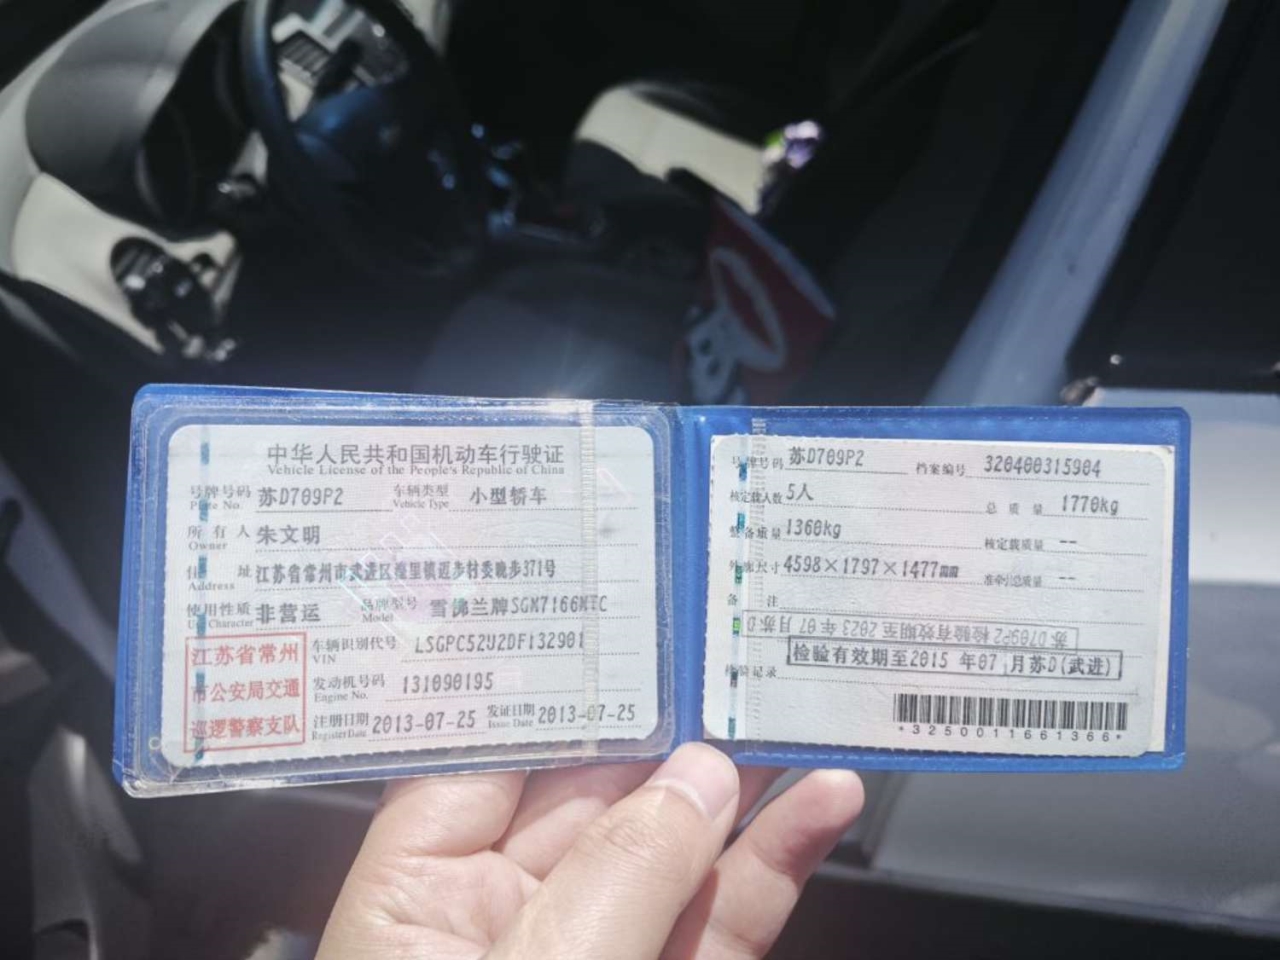 中华人民共和国机动车行驶证
Vehicle License of the People's Republic of China
号牌号码 Plate No. 苏D709P2 车辆类型 Vehicle Type 小型轿车
所有人 Owner 朱文明
住址 Address 江苏省常州市武进区 镇迈步村委 步371号
使用性质 Use Character 非营运 品牌型号 Model 雪佛兰牌SGM7166MTC
江苏省常州
市公安局交通
巡逻警察支队
车辆识别代号 VIN LSGPC52U2DF132901
发动机号码 Engine No. 131090195
注册日期 Register Date 2013-07-25 发证日期 Issue Date 2013-07-25
号牌号码 苏D709P2 档案编号 320400315904
核定载人数 5人 总质量 1770kg
整备质量 1360kg 核定载质量 --
外廓尺寸 4598×1797×1477mm 准牵引总质量 --
备注
苏D709P2 检验有效期至2023年07月苏D
检验有效期至2015年07月苏D(武进)
检验记录
*3250011661366*